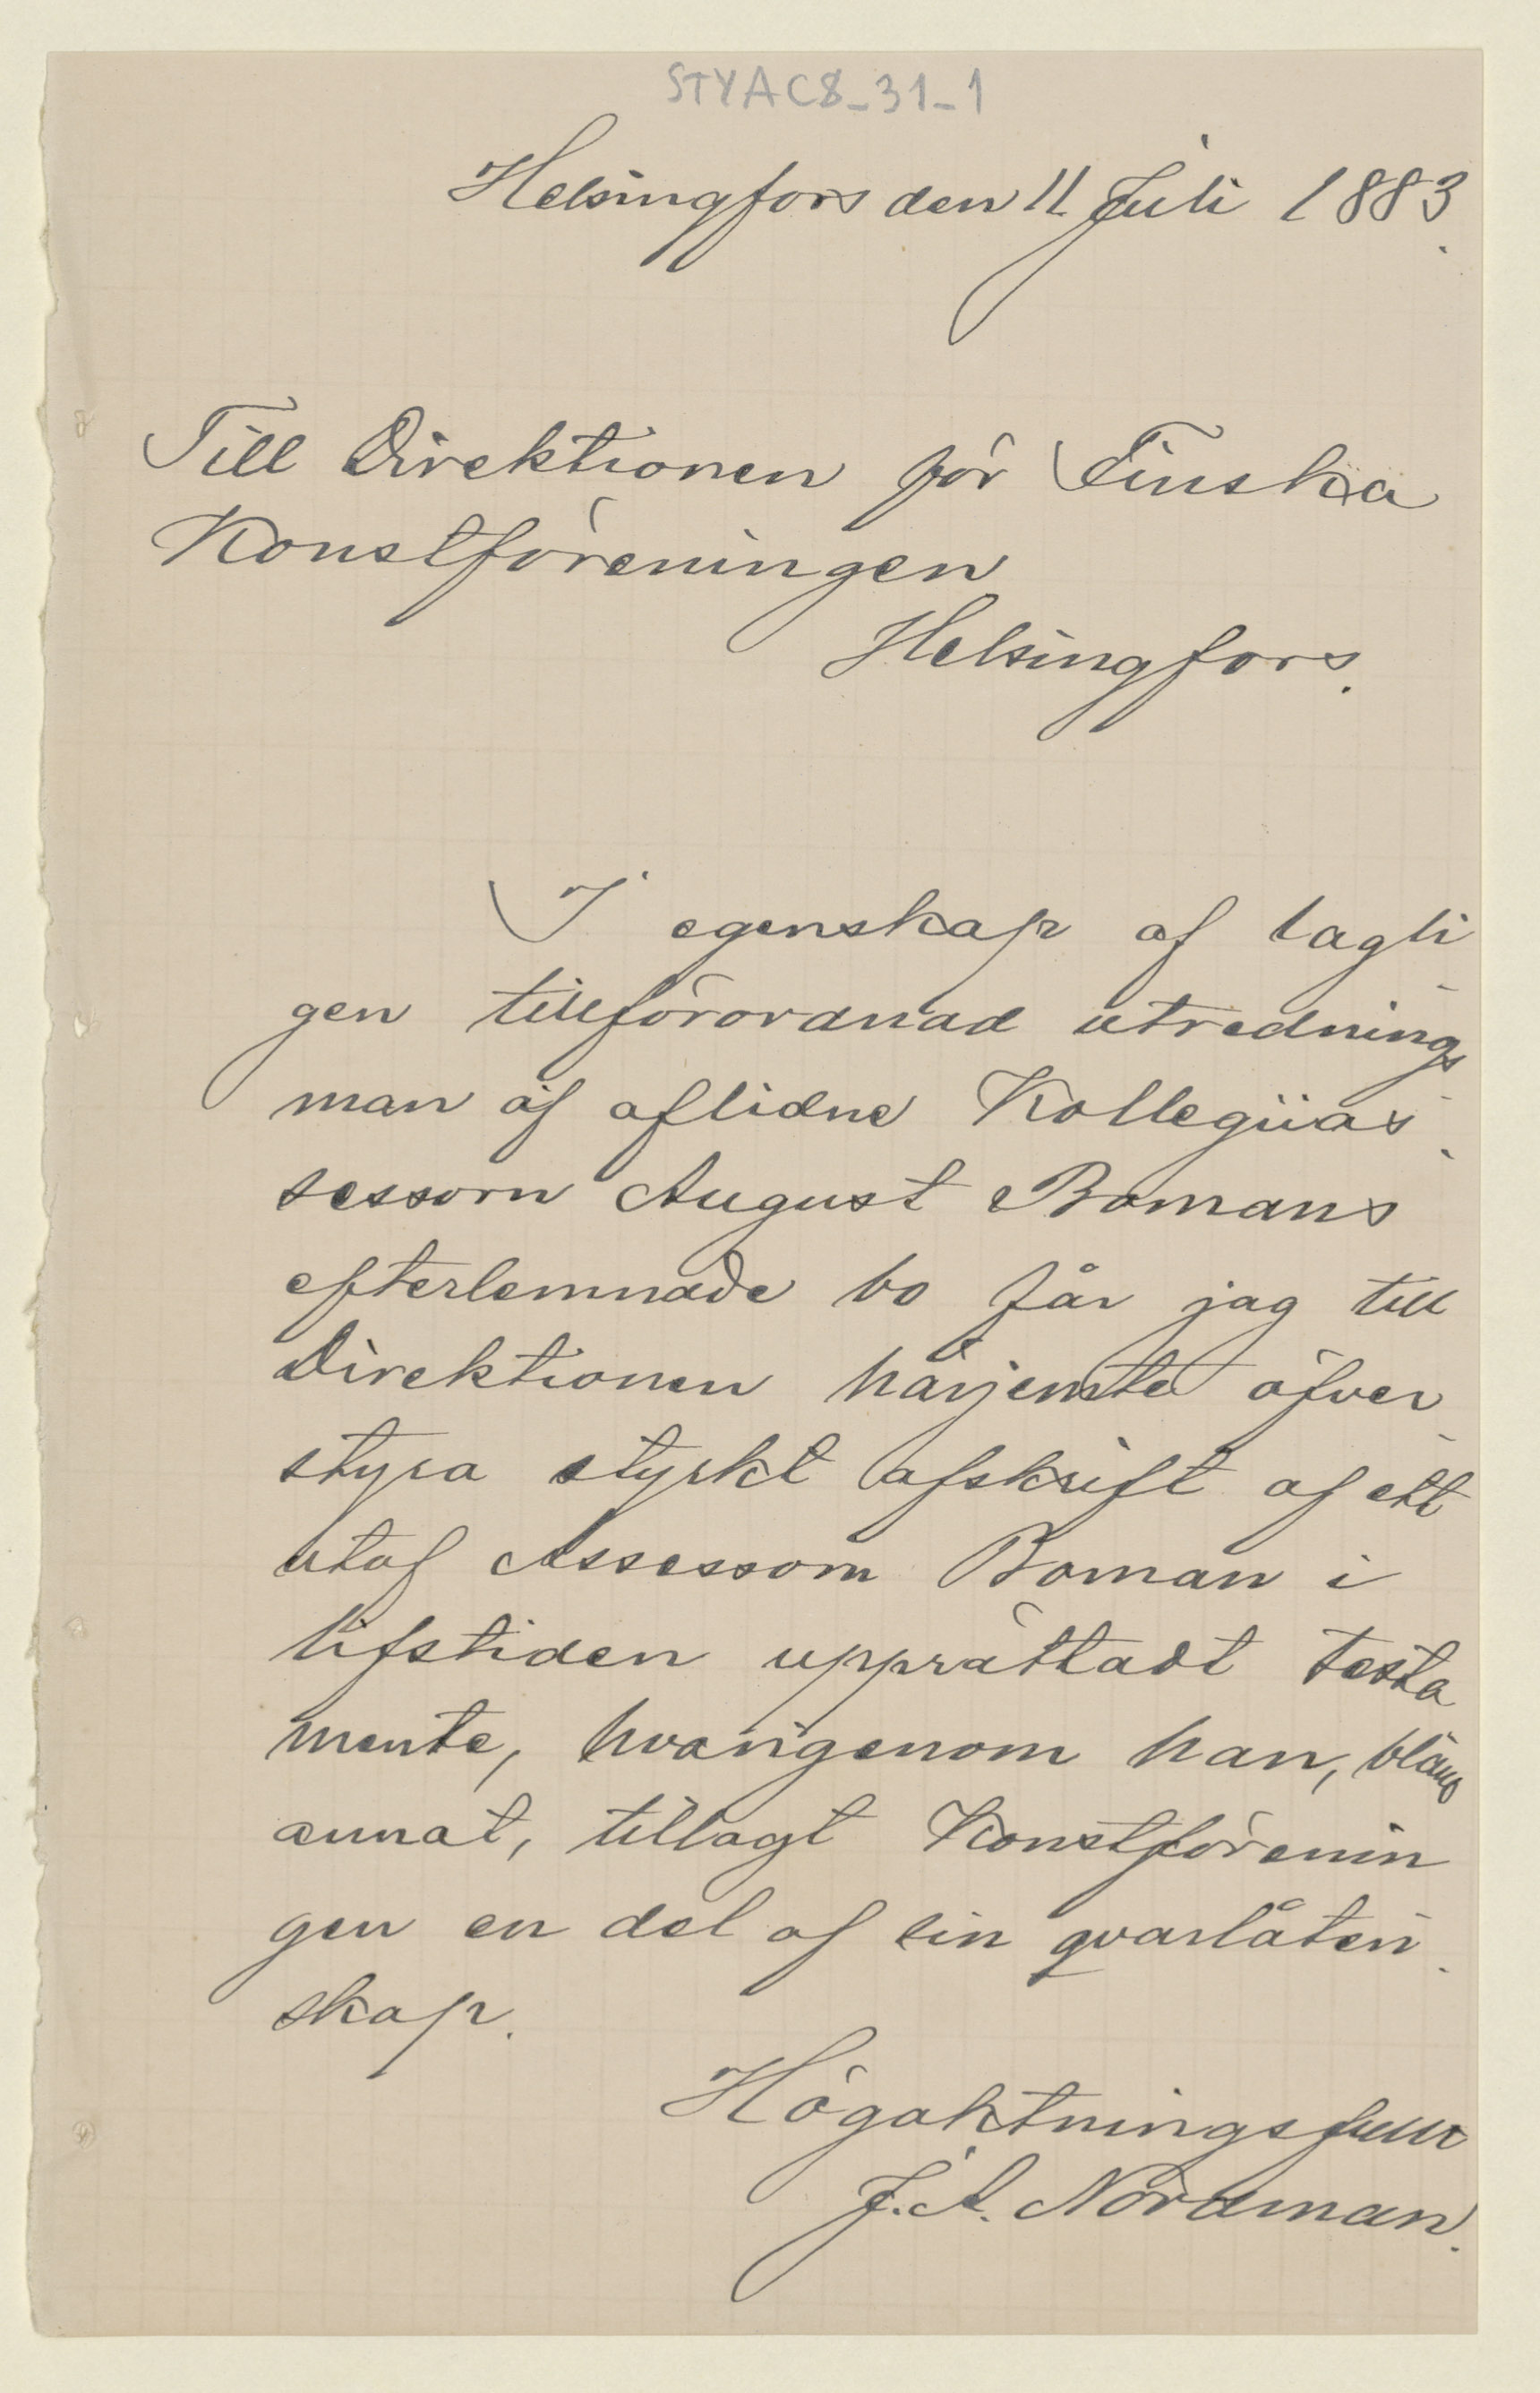 STYAC8_31_1
Helsingfors den 11 Juli 1883.
Till Direktionen för Finska
Konstföreningen
Helsingfors.
I egenskap af lagli
gen tillförordnad utrednings
man af aflidne Kollegiias
sessorn August Bomans
efterlemnade bo får jag till
Direktionen härjemte öfver
styra styrkt afskrift af ett
utaf Assessorn Boman i
lifstiden upprättadt testa
mente, hvarigenom han, bland
annat, tillagt Konstförenin
gen en del af sin qvarlåten
skap.
Högaktningsfullt
J. A. Nordman.